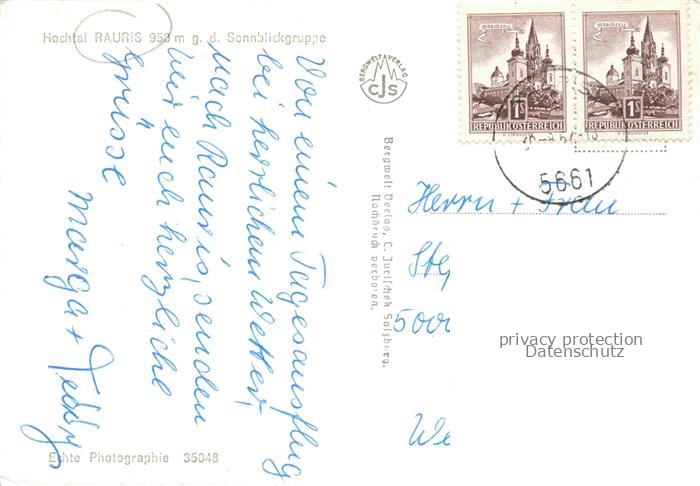 Hochtal RAURIS 950 m g. d. Sonnblickgruppe
Von einem Tagesausflug
bei herrlichem Wetter,
nach Rauris, senden
wir euch herzliche
Grüsse
Marga + Teddy
Echte Photographie 35048
BERGWELT-VERLAG
CJS
Bergwelt Verlag, C. Jurischek Salzburg.
Nachdruck verboten.
MARIAZELL
1S
REPUBLIK ÖSTERREICH
MARIAZELL
1S
REPUBLIK ÖSTERREICH
5661
Herrn + Frau
Ste
5000
We
privacy protection
Datenschutz